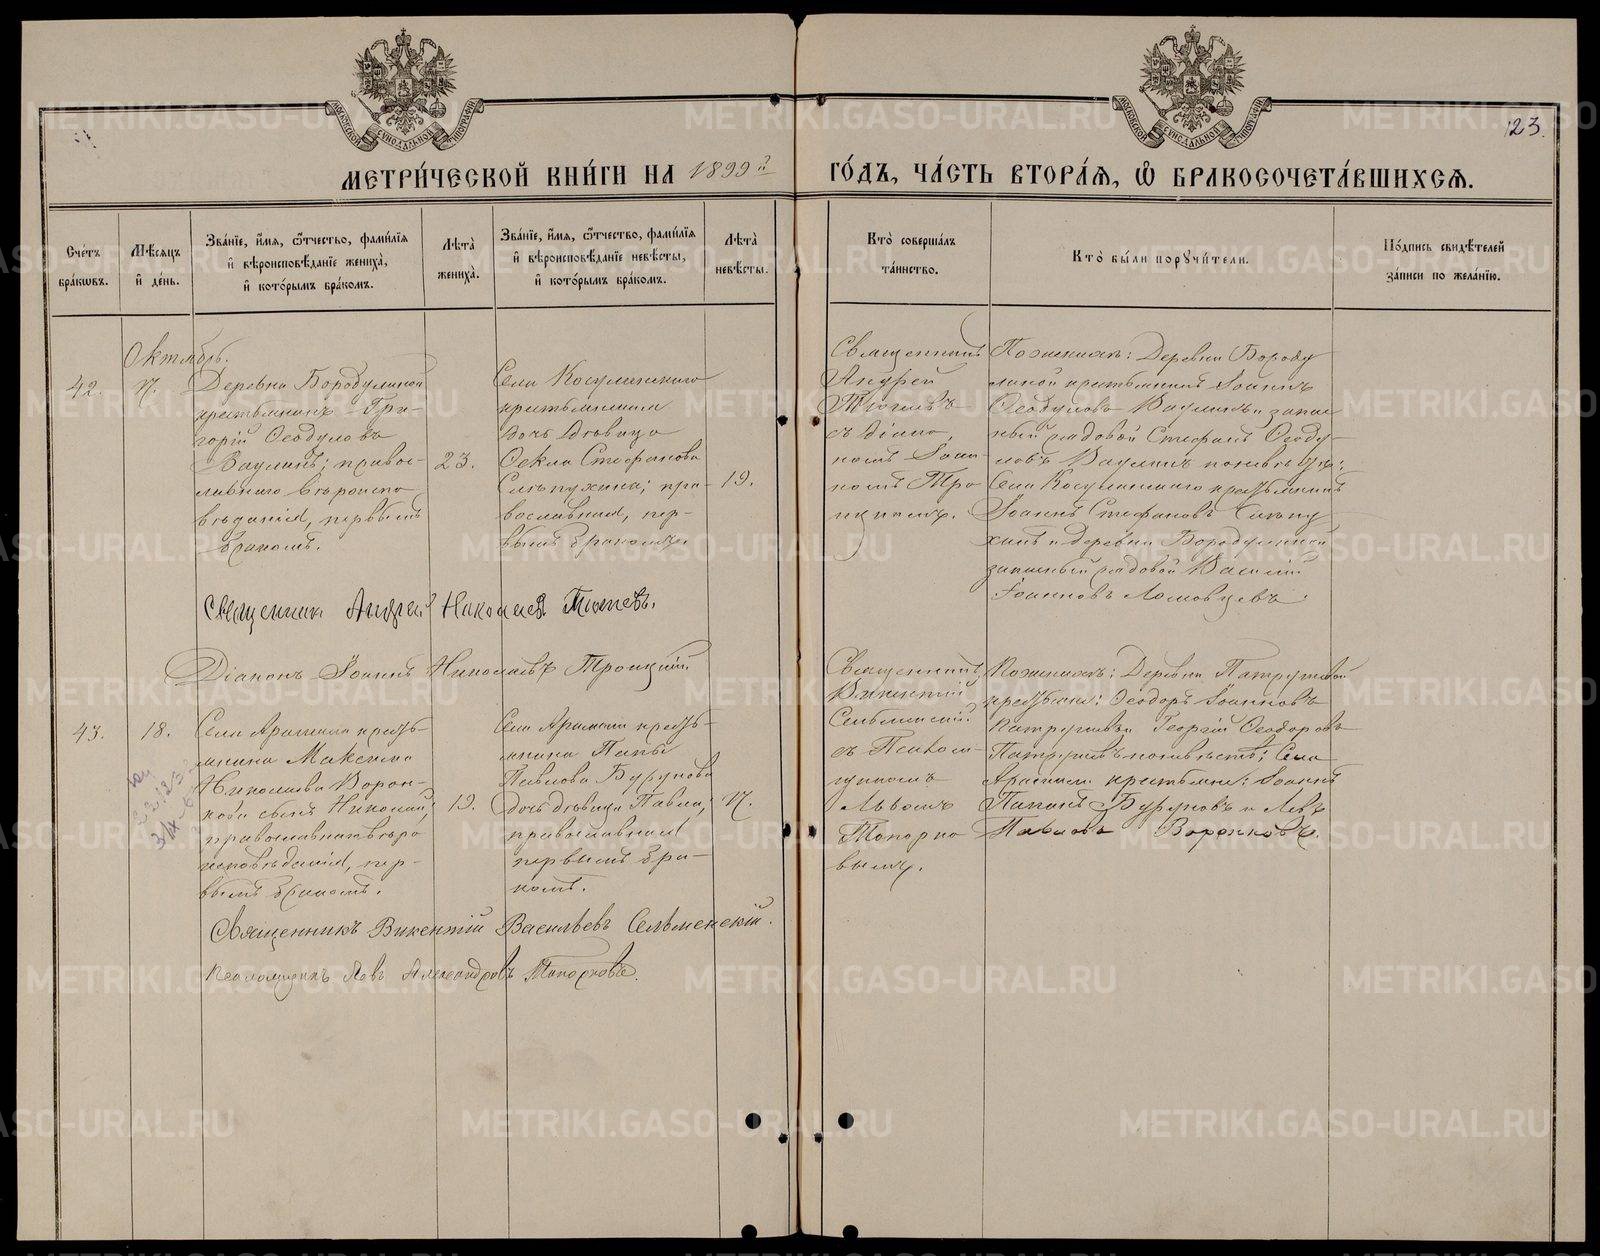 МЕТРИ́ЧЕСКОЙ КНИ́ГИ НА 1899 й
ГО́ДЪ, ЧА́СТЬ ВТОРА́Я, Ѿ БРАКОСОЧЕТА́ВШИХСЯ.
123.
Сче́тъ бра́кѡвъ.
Мѣ́сяцъ и҆ де́нь.
Зва́нїе, и҆́мя, ѻ҆́тчество, фами́лїя
и҆ вѣроисповѣ́данїе жениха̀,
и҆ кото́рымъ бра́комъ.
Лѣ́та жениха̀.
Зва́нїе, и҆́мя, ѻ҆́тчество, фами́лїя
и҆ вѣроисповѣ́данїе невѣ́сты,
и҆ кото́рымъ бра́комъ.
Лѣ́та невѣ́сты.
Кто̀ соверша́лъ
та́инство.
Кто̀ бы́ли порꙋчи́тели.
По́дпись свидѣ́телей
за́писи по жела́нїю.
Октябрь.
42.
17.
Деревни Бородулиной
крестьянинъ Гри-
горій Ѳеодуловъ
Ваулинъ; правос-
лавнаго вѣроиспо
вѣданія, первымъ
бракомъ.
23.
Села Косулинскаго
крестьянина
дочь дѣвица
Ѳекла Стефанова
Слѣпухина; пра-
вославная, пер-
вымъ бракомъ
19.
Священникъ
Андрей
Тютевъ
съ діако-
номъ Іоан-
номъ Тро
ицкимъ.
По женихѣ: Деревни Бороду
линой крестьянинъ Іоаннъ
Ѳеодуловъ Ваулинъ и запас
ный рядовой Стефанъ Ѳеоду-
ловъ Ваулинъ по невѣстѣ:
Села Косулинскаго крестьянинъ
Іоаннъ Стефановъ Слѣпу
хинъ и деревни Бородулиной
запасный рядовой Василій
Іоанновъ Ломовцевъ.
Священникъ Андрей Николаевъ Тютевъ.
Діаконъ Іоаннъ Николаевъ Троицкій
43.
18.
Села Арамили кресть-
янина Максима
Николаева Ворон-
кова сынъ Николай;
православнаго вѣро
исповѣданія, пер-
вымъ бракомъ.
19.
Села Арамили кресть-
янина Папы
Павлова Бурунова
дочь дѣвица Павла,
православная
первымъ бра-
комъ.
17.
Священникъ
Викентій
Сельменскій
съ Псалом-
щикомъ
Львомъ
Топорко
вымъ.
По женихѣ: Деревни Патрушевой
крестьяне: Ѳеодоръ Іоанновъ
Патрушевъ и Георгій Ѳеодоровъ
Патрушевъ по невѣстѣ; Села
Арамили крестьяне: Іоаннъ
Папинъ Буруновъ и Левъ
Павловъ Воронковъ.
Священникъ Викентій Васильевъ Сельменскій.
Псаломщикъ Левъ Александровъ Топорковъ.
METRIKI.GASO-URAL.RU